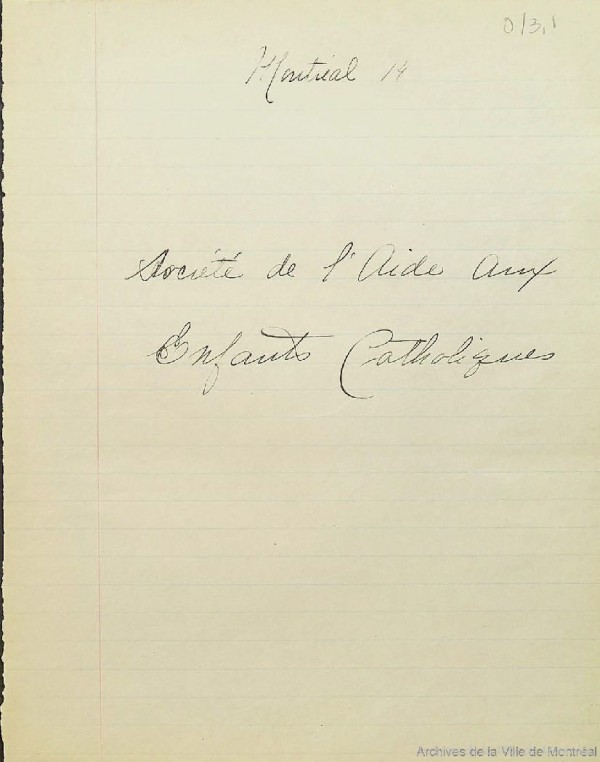 013.1
Montréal 14
Société de l'Aide aux
Enfants Catholiques
Archives de la Ville de Montréal